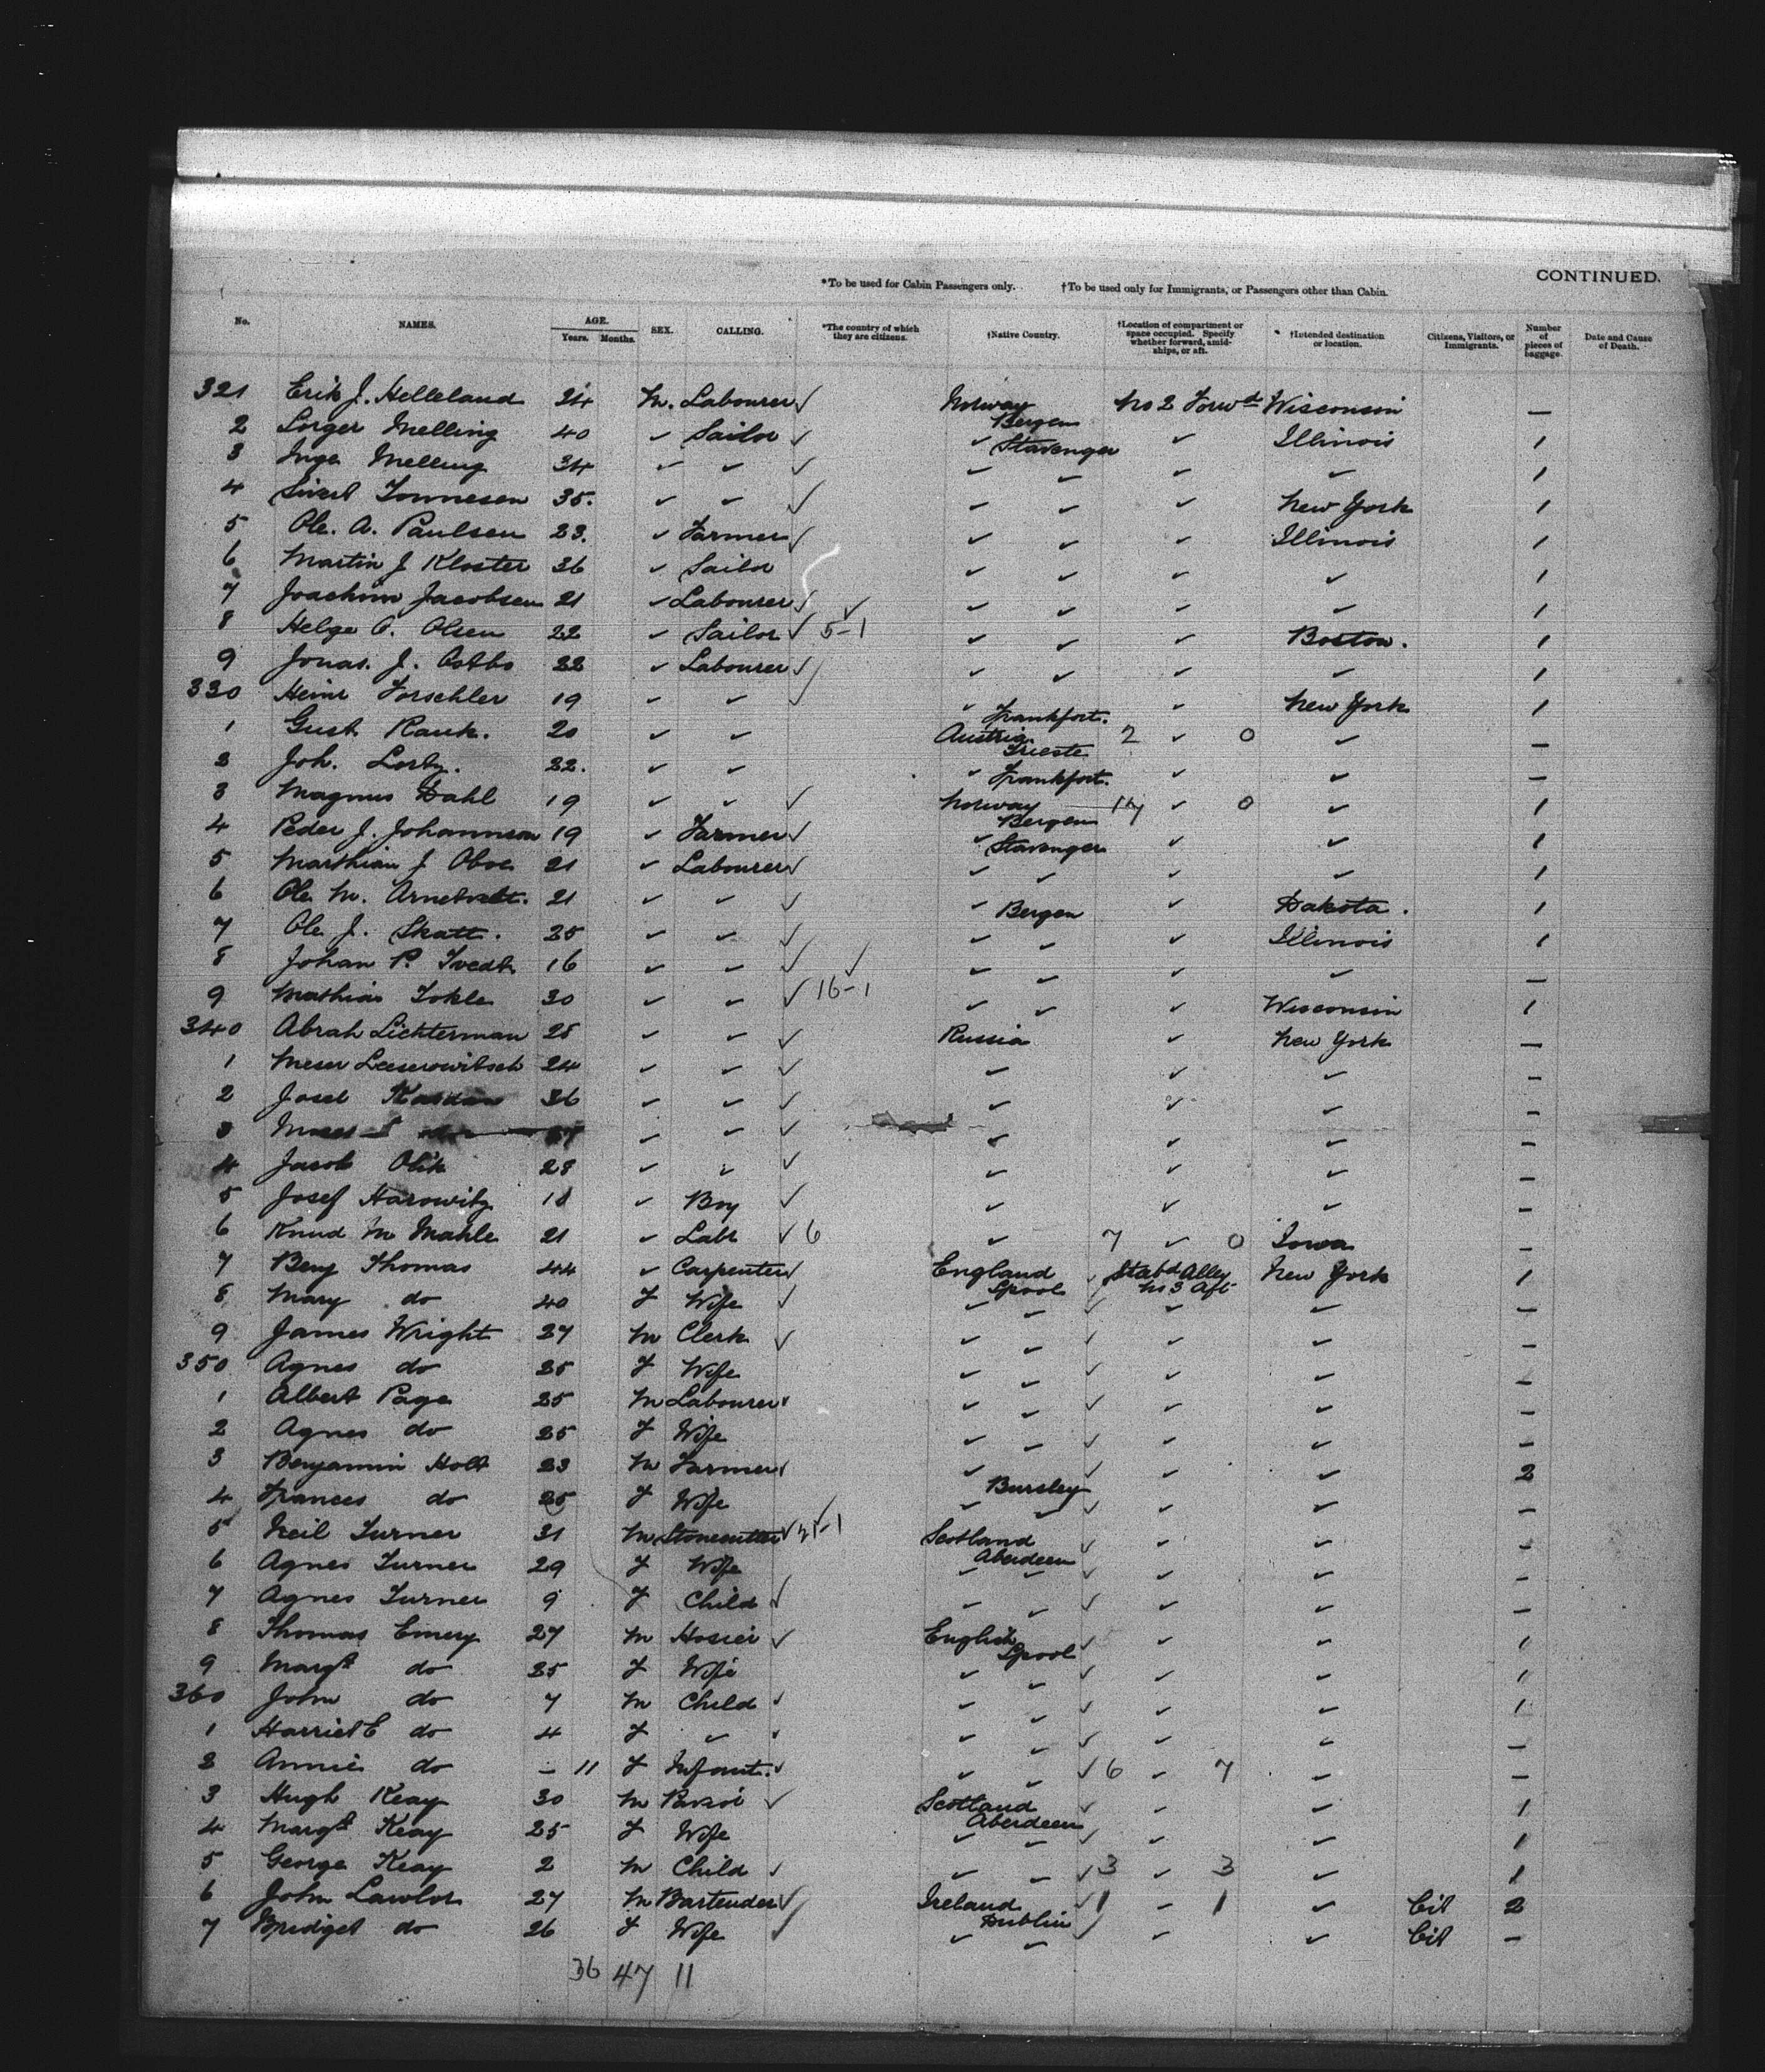 CONTINUED.
*To be used for Cabin Passengers only. †To be used only for Immigrants, or Passengers other than Cabin.
No. NAMES. AGE. Years. Months. SEX. CALLING. *The country of which they are citizens. †Native Country. †Location of compartment or space occupied. Specify whether forward, amidships, or aft. †Intended destination or location. Citizens, Visitors, or Immigrants. Number of pieces of baggage. Date and Cause of Death.
321 Erik J. Helleland 24 M. Labourer ✓ Norway Bergen No 2 Forwd Wisconsin —
2 Melling 40 ✓ Sailor ✓ ✓ Stavenger ✓ Illinois 1
3 Inge Melling 34 ✓ ✓ ✓ ✓ ✓ ✓ ✓ 1
4 Sivert Tonnesen 35. ✓ ✓ ✓ ✓ ✓ ✓ New York 1
5 Ole. A. Paulsen 23. ✓ Farmer ✓ ✓ ✓ ✓ Illinois 1
6 Martin J Kloster 36 ✓ Sailor ✓ ✓ ✓ ✓ 1
7 Joachim Jacobsen 21 ✓ Labourer ✓ ✓ ✓ ✓ ✓ 1
8 Helge O. Olsen 22 ✓ Sailor ✓ 5-1 ✓ ✓ ✓ Boston. 1
9 Jonas. J. 22 ✓ Labourer ✓ ✓ ✓ ✓ ✓ 1
330 Heinr Forschler 19 ✓ ✓ ✓ ✓ Frankfort. ✓ New York 1
1 Gust Rauk. 20 ✓ ✓ Austria Trieste 2 ✓ 0 ✓ —
2 Joh. 22. ✓ ✓ ✓ Frankfort. ✓ ✓ —
3 Magnus Dahl 19 ✓ ✓ ✓ Norway Bergen ✓ 0 ✓ 1
4 Peder J. Johannson 19 ✓ Farmer ✓ ✓ Stavenger ✓ ✓ 1
5 Marthian J Oboe 21 ✓ Labourer ✓ ✓ ✓ ✓ ✓ 1
6 Ole M. 21 ✓ ✓ ✓ ✓ Bergen ✓ Dakota. 1
7 Ole J. Skatt. 25 ✓ ✓ ✓ ✓ ✓ ✓ Illinois 1
8 Johan P. Tvedt 16 ✓ ✓ ✓ ✓ ✓ ✓ ✓ —
9 Mathias Tokle 30 ✓ ✓ ✓ 16-1 ✓ ✓ ✓ Wisconsin 1
340 Abrah Lichterman 28 ✓ ✓ ✓ Russia ✓ New York —
1 Meser Leeserowitsch 24 ✓ ✓ ✓ ✓ ✓ ✓ —
2 Josel 36 ✓ ✓ ✓ ✓ ✓ ✓ —
3 Moses do ✓ ✓ ✓ ✓ ✓ ✓ —
4 Jacob Olik 28 ✓ ✓ ✓ ✓ ✓ ✓ —
5 Josef Harowitz ✓ Boy ✓ ✓ ✓ ✓ —
6 Knud M Mahle 21 ✓ Labr ✓ 6 ✓ 7 ✓ 0 Iowa —
7 Benj Thomas 44 ✓ Carpenter ✓ England Lpool ✓ Starbd Alley No 3 Aft New York 1
8 Mary do 40 F Wife ✓ ✓ ✓ ✓ ✓ ✓ —
9 James Wright 27 M Clerk ✓ ✓ ✓ ✓ ✓ ✓ —
350 Agnes do 25 F Wife ✓ ✓ ✓ ✓ ✓ —
1 Albert Page 25 M Labourer ✓ ✓ ✓ ✓ ✓ ✓ —
2 Agnes do 25 F Wife ✓ ✓ ✓ ✓ ✓ —
3 Benjamin Holt 23 M Farmer ✓ ✓ Bursley ✓ ✓ ✓ 2
4 Frances do 25 F Wife ✓ ✓ ✓ ✓ ✓ —
5 Neil Turner 31 M Stonecutter ✓ Scotland Aberdeen ✓ ✓ ✓ —
6 Agnes Turner 29 F Wife ✓ ✓ ✓ ✓ —
7 Agnes Turner 9 F Child ✓ ✓ ✓ ✓ ✓ ✓ —
8 Thomas Emery 27 M Hosier ✓ English Lpool ✓ ✓ ✓ 1
9 Margt do 25 F Wife ✓ ✓ ✓ ✓ ✓ 1
360 John do 7 M Child ✓ ✓ ✓ ✓ ✓ ✓ 1
1 Harriet E do 4 F ✓ ✓ ✓ ✓ ✓ ✓ ✓ —
2 Annie do — 11 F Infant. ✓ ✓ ✓ ✓ 6 ✓ 7 ✓ —
3 Hugh Keay 30 M ✓ Scotland Aberdeen ✓ ✓ ✓ 1
4 Margt Keay 25 F Wife ✓ ✓ ✓ ✓ ✓ 1
5 George Keay 2 M Child ✓ ✓ ✓ ✓ 3 ✓ 3 ✓ 1
6 John Lawlor 27 M Bartender ✓ Ireland Dublin ✓ 1 — 1 ✓ Cit 2
7 Bridget do 26 F Wife ✓ ✓ ✓ ✓ ✓ ✓ Cit —
36 47 11